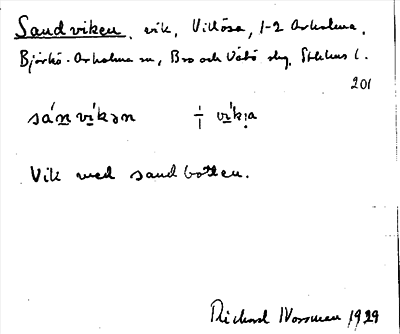 Sandviken, vik, Villösa, 1-2 Arholma,
Björkö-Arholma sn, Bro och Vätö skg, Sthlms l.
201
sánvíkən ⸓ víkịa
Vik med sandbotten.
Richard Norrman 1929